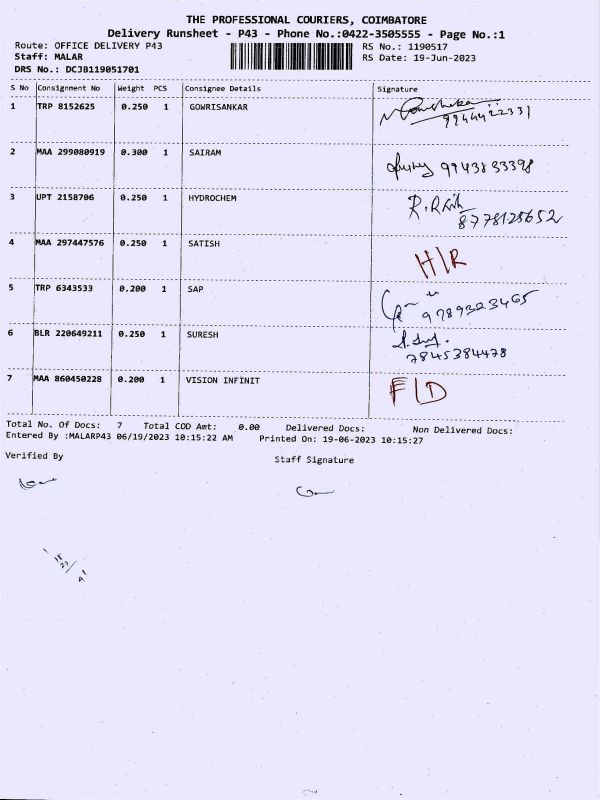 THE PROFESSIONAL COURIERS, COIMBATORE
Delivery Runsheet - P43 - Phone No.:0422-3505555 - Page No.:1
Route: OFFICE DELIVERY P43 RS No.: 1190517
Staff: MALAR RS Date: 19-Jun-2023
DRS No.: DCJB119051701
S No Consignment No Weight PCS Consignee Details Signature
1 TRP 8152625 0.250 1 GOWRISANKAR
2 MAA 299080919 0.300 1 SAIRAM 9943833398
3 UPT 2158706 0.250 1 HYDROCHEM 8778128652
4 MAA 297447576 0.250 1 SATISH H/R
5 TRP 6343533 0.200 1 SAP 9789323465
6 BLR 220649211 0.250 1 SURESH
7845384478
7 MAA 860450228 0.200 1 VISION INFINIT F/D
Total No. Of Docs: 7 Total COD Amt: 0.00 Delivered Docs: Non Delivered Docs:
Entered By :MALARP43 06/19/2023 10:15:22 AM Printed On: 19-06-2023 10:15:27
Verified By Staff Signature